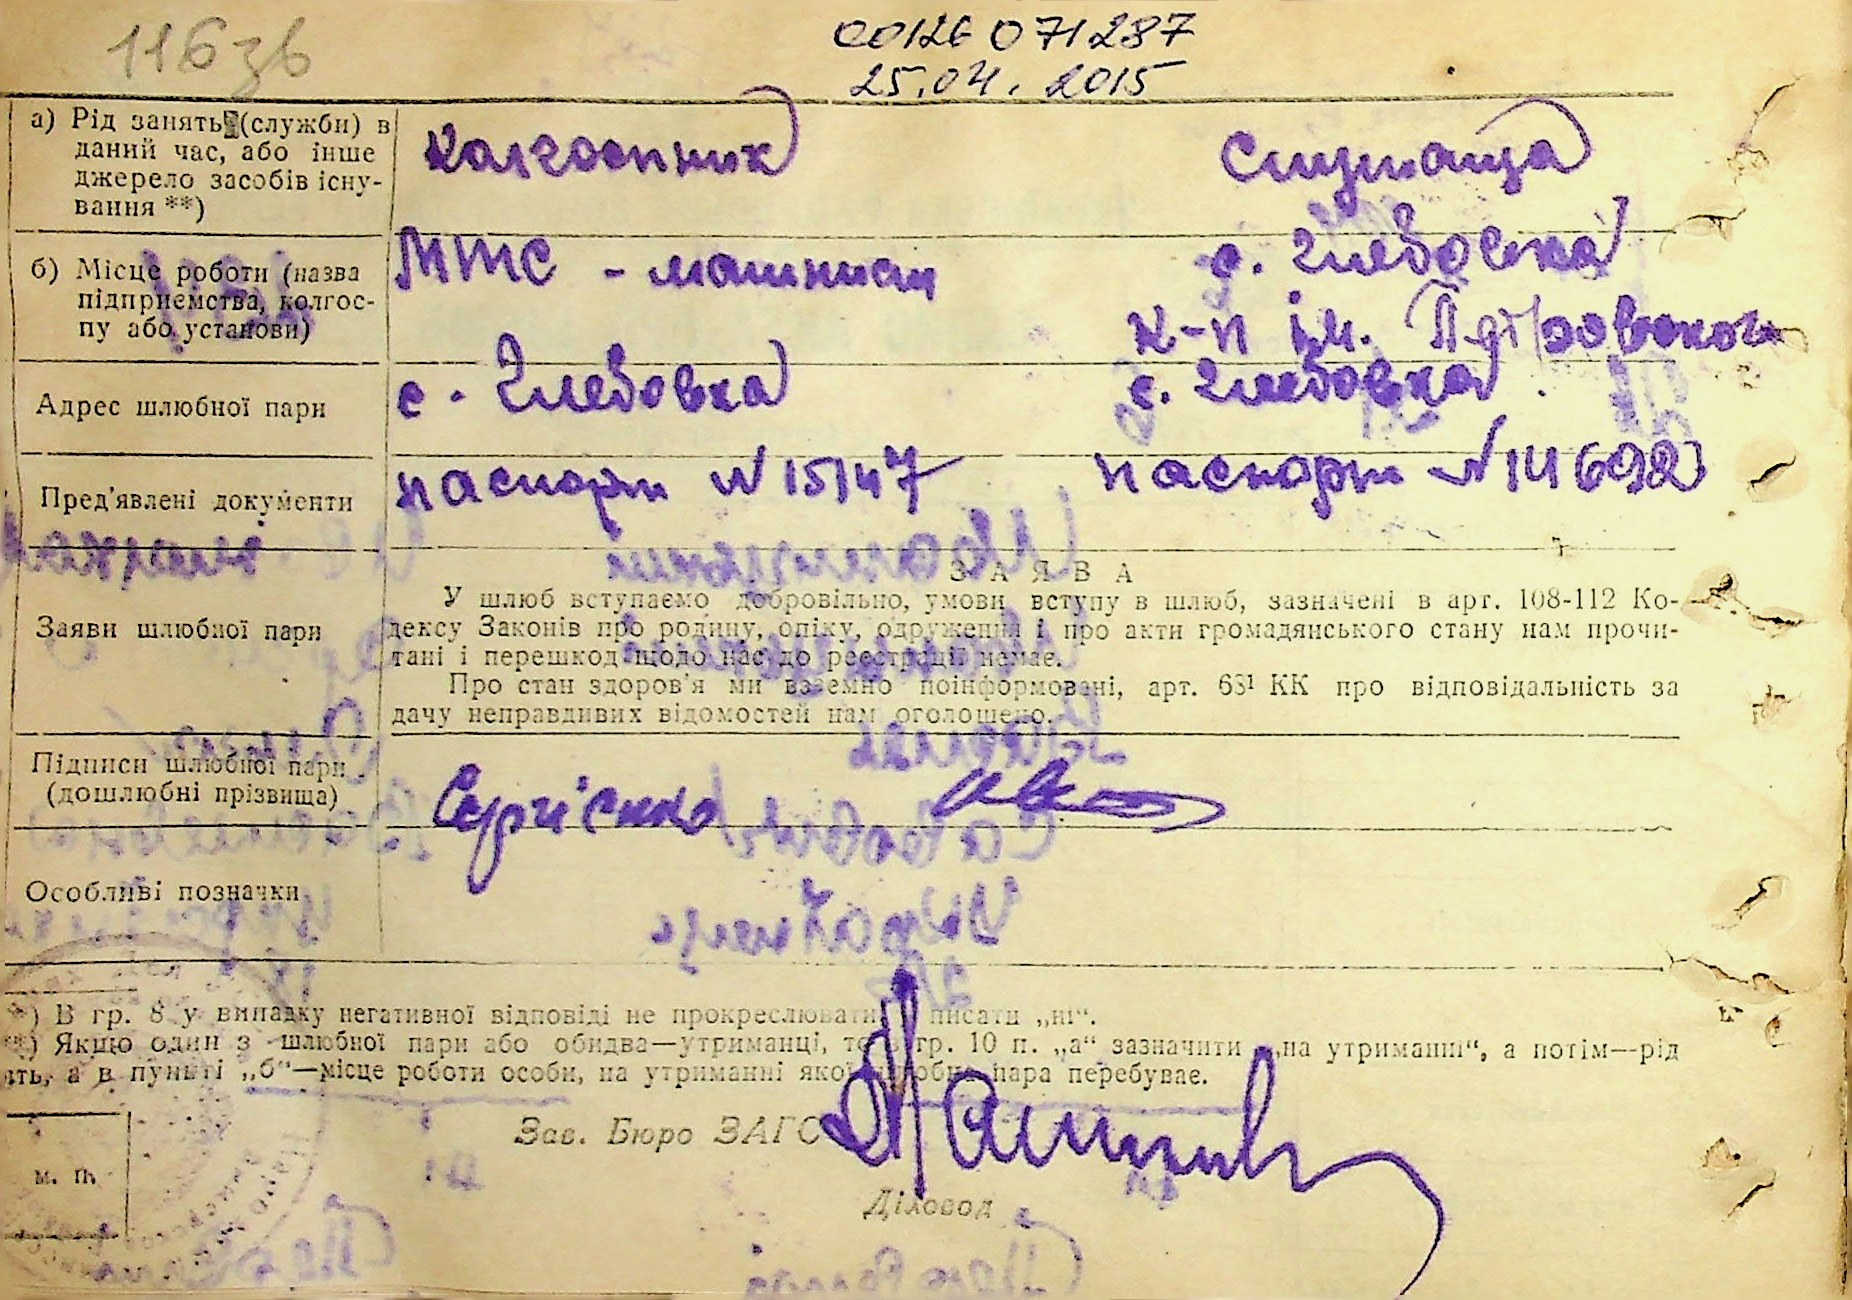 116зв
00126 071287
25.04.2015
а) Рід занять (служби) в
даний час, або інше
джерело засобів існу-
вання **)
Колгоспник
Служаща
б) Місце роботи (назва
підприємства, колгос-
пу або установи)
МТС - машиніст
с. Глебовка
к-п ім. Петровського
Адрес шлюбної пари
с. Глебовка
с. Глебовка
Пред'явлені документи
паспорт N 15147
паспорт N 14692
Заяви шлюбної пари
ЗАЯВА
У шлюб вступаємо добровільно, умови вступу в шлюб, зазначені в арт. 108-112 Ко-
дексу Законів про родину, опіку, одруження і про акти громадянського стану нам прочи-
тані і перешкод щодо нас до реєстрації немає.
Про стан здоров'я ми взаємно поінформовані, арт. 68¹ КК про відповідальність за
дачу неправдивих відомостей нам оголошено.
Підписи шлюбної пари
(дошлюбні прізвища)
Сергієнко
Особливі позначки
*) В гр. 8 у випадку негативної відповіді не прокреслювати, писати „ні“.
**) Якщо один з шлюбної пари або обидва—утриманці, то в гр. 10 п. „а“ зазначити „на утриманні“, а потім—рід
ять, а в пункті „б“—місце роботи особи, на утриманні якої шлюбна пара перебуває.
Зав. Бюро ЗАГС
м. п.
Діловод